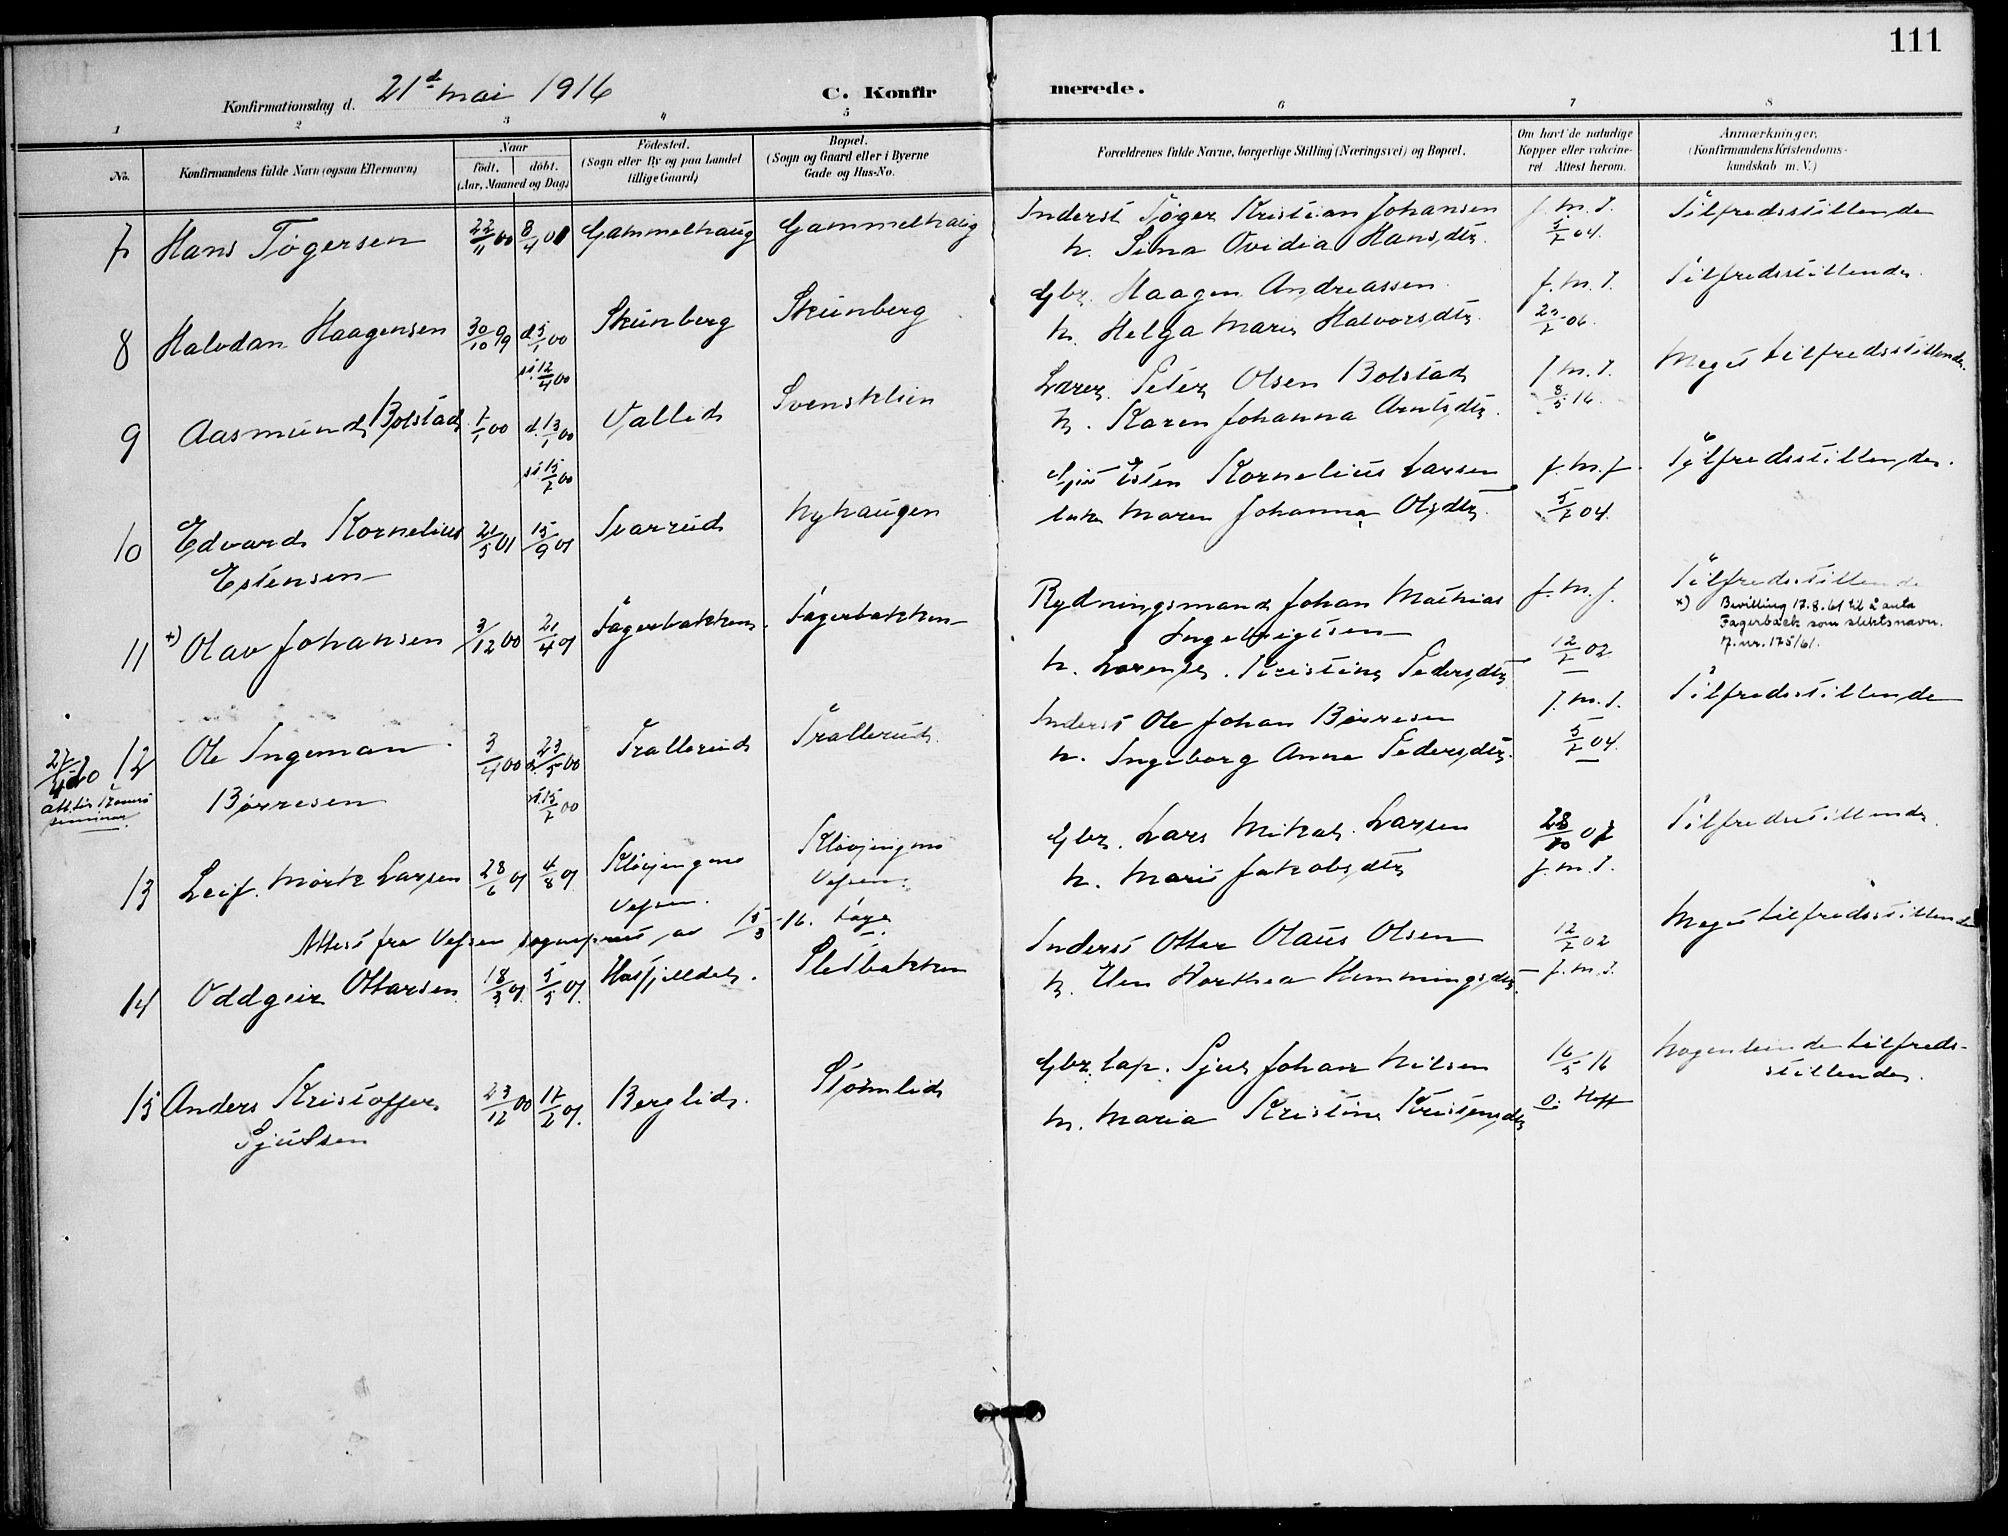 111
Konfirmationsdag d. 21d mai 1916
C. Konfirmerede.
1 2 3 4 5 6 7 8
No.
Konfirmandens fulde Navn (ogsaa Efternavn)
Naar
født. døbt.
(Aar, Maaned og Dag)
Födested.
(Sogn eller By og paa Landet
tillige Gaard)
Bopæl.
(Sogn og Gaard eller i Byerne
Gade og Hus-No.
Forældrenes fulde Navne, borgerlige Stilling (Næringsvei) og Bopæl.
Om havt de naturlige
Kopper eller vaccine-
ret Attest herom.
Anmærkninger,
(Konfirmandens Kristendoms-
kundskab m. V.)
7 Hans Tøgersen 22/11 00 8/4 01 Gammelhaug Gammelhaug
Inderst Tøger Kristian Johansen
h. Sina Ovidia Hansdtr.
5/7 04.
Tilfredsstillende
8 Halvdan Haagensen 30/10 99 d 5/1 00
st. 12/4 00
Skünberg Skünberg
Gbr. Haagen Andreassen
h. Helga Marie Halvorsdtr.
Tilfredsstillende
9 Aasmund Bolstad 1/1 00 d. 13/1 00
st. 15/7 00
Vallid Svensklien
Lærer Peter Olsen Bolstad
h. Karen Johanna Arntsdtr.
8/5 16.
Meget tilfredsstillende.
10 Edvard Kornelius
Estensen
21/5 01 15/9 01 Ivarrud Nyhaugen
Esten Kornelius Larsen
Maren Johanna Olsdtr.
5/7 04.
Tilfredsstillende.
11 +) Olav Johansen 3/12 00 21/4 01 Fagerbakken. Fagerbakken
Rydningsmand Johan Mathias
Ingebrigtsen
h. Lorense Kristine Pedersdtr
12/7 02
Tilfredsstillende
+) Bevilling 17.8.61 til å anta
Fagerbakk som slektsnavn.
J.nr. 175/61.
12 Ole Ingeman
Børresen
3/4 00 d. 23/5 00
st. 15/7 00
Trallerud Trallerud.
Inderst Ole Johan Børresen
h. Ingeborg Anna Pedersdtr.
5/7 04.
Tilfredsstillende
27/4 20
att. til Tromsø
seminar.
13 Leif Mörk Larsen 28/6 01 4/8 01
Kløvjengmo
Vefsen.
Kløvjengmo
Vefsen.
Gbr. Lars Mikal Larsen
h. Marie Jakobsdtr
Tilfredsstillende.
Attest fra Vefsen sogneprest av 15/3 -16.
14 Oddgeir Ottarsen 18/3 01. 5/5 01. Hatfjelldal. Sletbakken
Inderst Ottar Olaus Olsen
h. Elen Dorthea Hemmingsdtr.
12/7 02
Meget tilfredsstillende
15 Anders Kristoffer
Sjulsen
23/12 00 17/2 01. Berglid. Stormlid
Gbr. lap. Sjul Johan Nilsen
h. Maria Kristine Kristensdtr
16/5 16
O. Hoff
Nogenlunde tilfreds-
stillende.